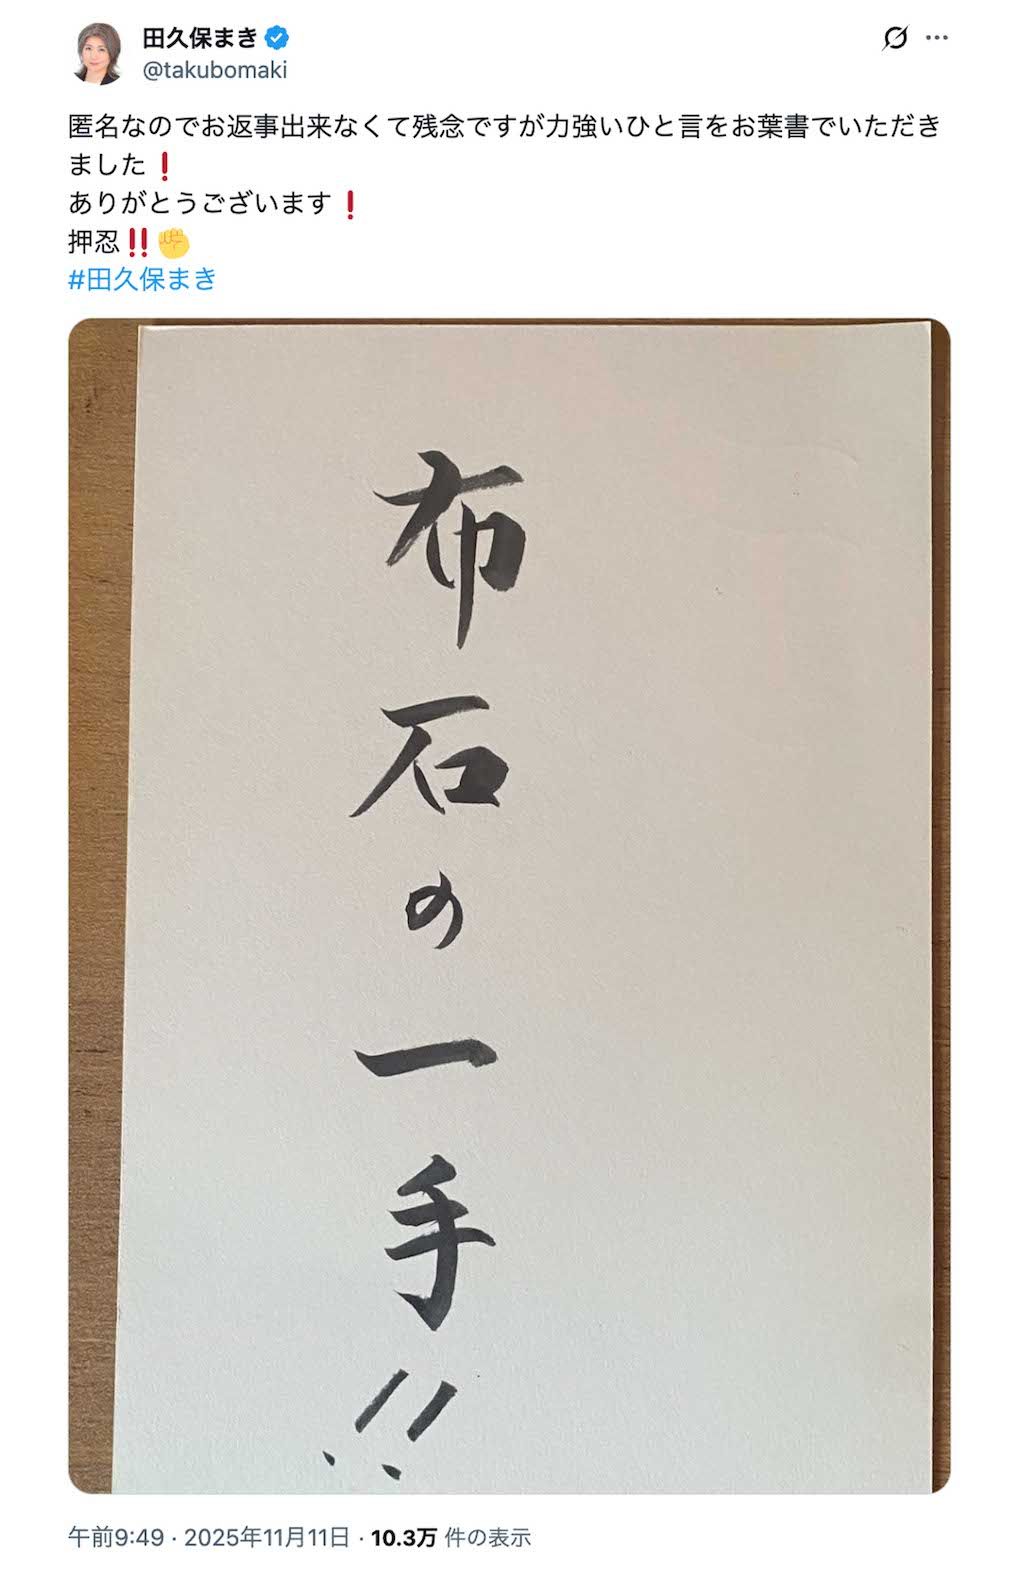 田久保まき
@takubomaki
匿名なのでお返事出来なくて残念ですが力強いひと言をお葉書でいただき
ました❗
ありがとうございます❗
押忍‼️✊
#田久保まき
布石の一手!!
午前9:49 · 2025年11月11日 · 10.3万 件の表示